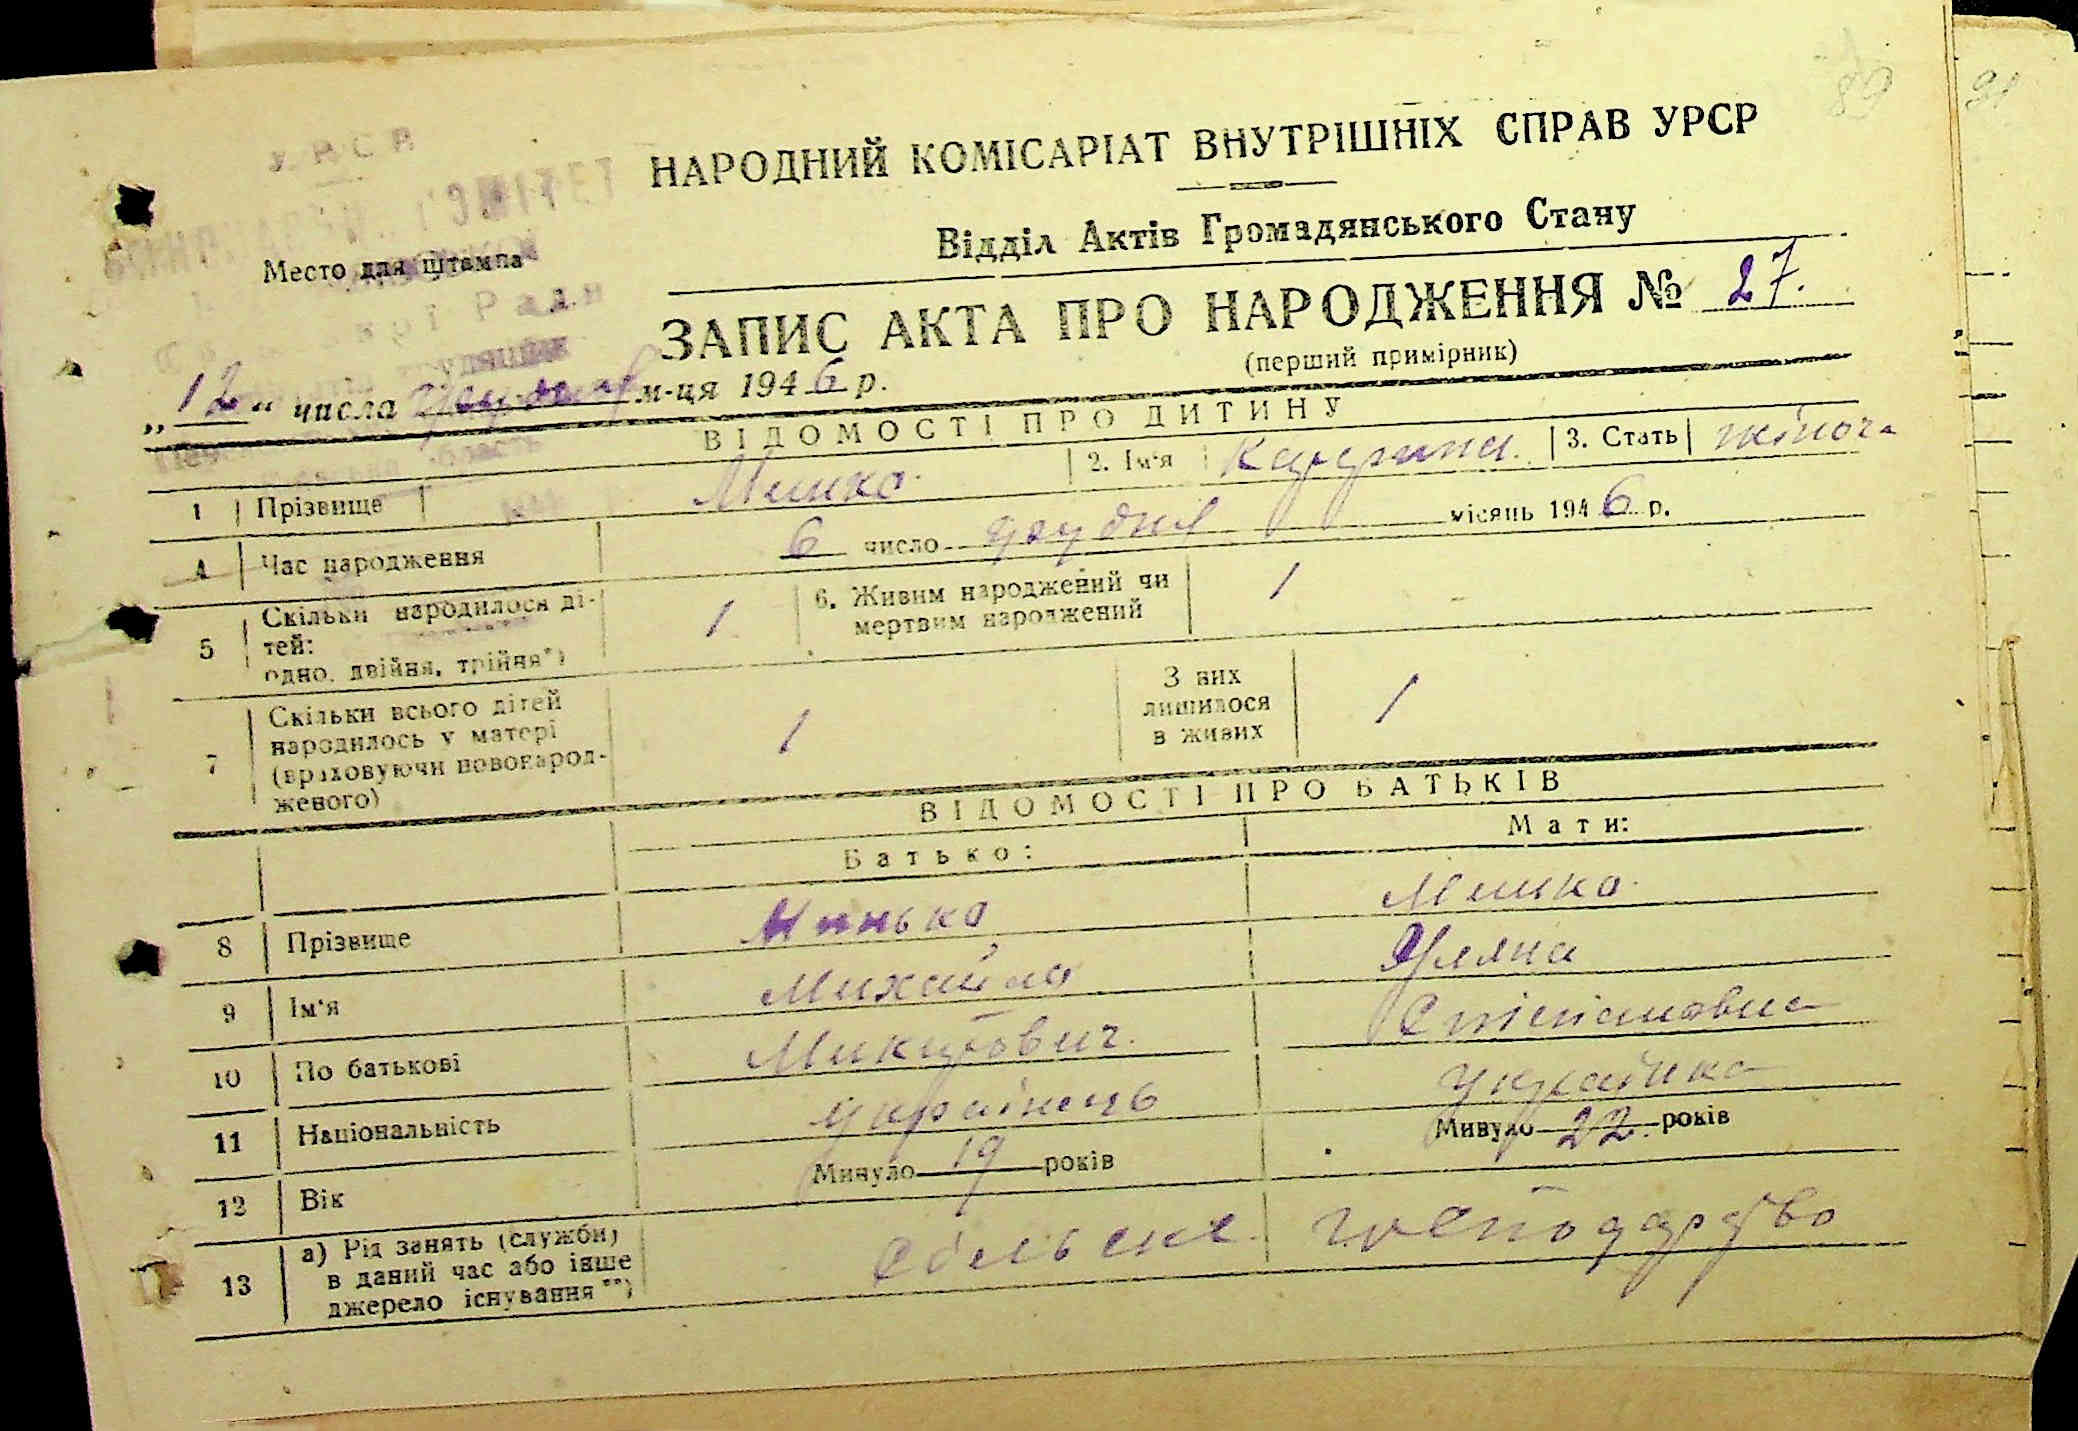 89
91
У Р С Р
НАРОДНИЙ КОМІСАРІАТ ВНУТРІШНІХ СПРАВ УРСР
Відділ Актів Громадянського Стану
Место для штампа
ЗАПИС АКТА ПРО НАРОДЖЕННЯ № 27.
(перший примірник)
„12“ числа грудня м-ця 1946 р.
ВІДОМОСТІ ПРО ДИТИНУ
1 Прізвище Минко 2. Ім'я Катерина 3. Стать жіноча
4 Час народження 6 число грудня місяць 1946 р.
5 Скільки народилося ді-
тей:
одно, двійня, трійня*) 1 6. Живим народжений чи
мертвим народжений 1
7 Скільки всього дітей
народилось у матері
(враховуючи новонарод-
женого) 1 З них
лишилося
в живих 1
ВІДОМОСТІ ПРО БАТЬКІВ
Батько: Мати:
8 Прізвище Минько Минко
9 Ім'я Михайло Уляна
10 По батькові Микитович Степановна
11 Національність українець українка
12 Вік Минуло 19 років Минуло 22 років
13 а) Рід занять (служби)
в даний час або інше
джерело існування**) сільське господарство